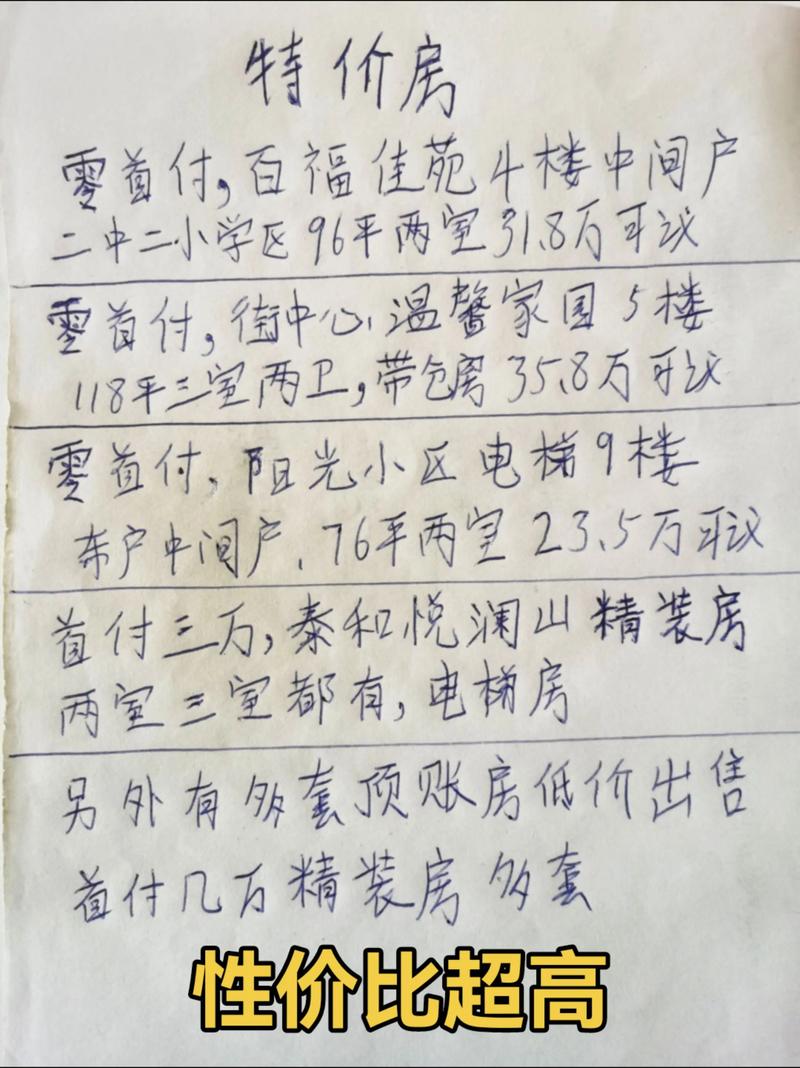 特价房
零首付,百福佳苑4楼中间户
二中二小学区96平两室31.8万可议
零首付,街中心、温馨家园5楼
118平三室两卫,带仓房35.8万可议
零首付,阳光小区电梯9楼
东户中间户、76平两室23.5万可议
首付三万,泰和悦澜山精装房
两室三室都有,电梯房
另外有多套顶账房低价出售
首付几万精装房多套
性价比超高